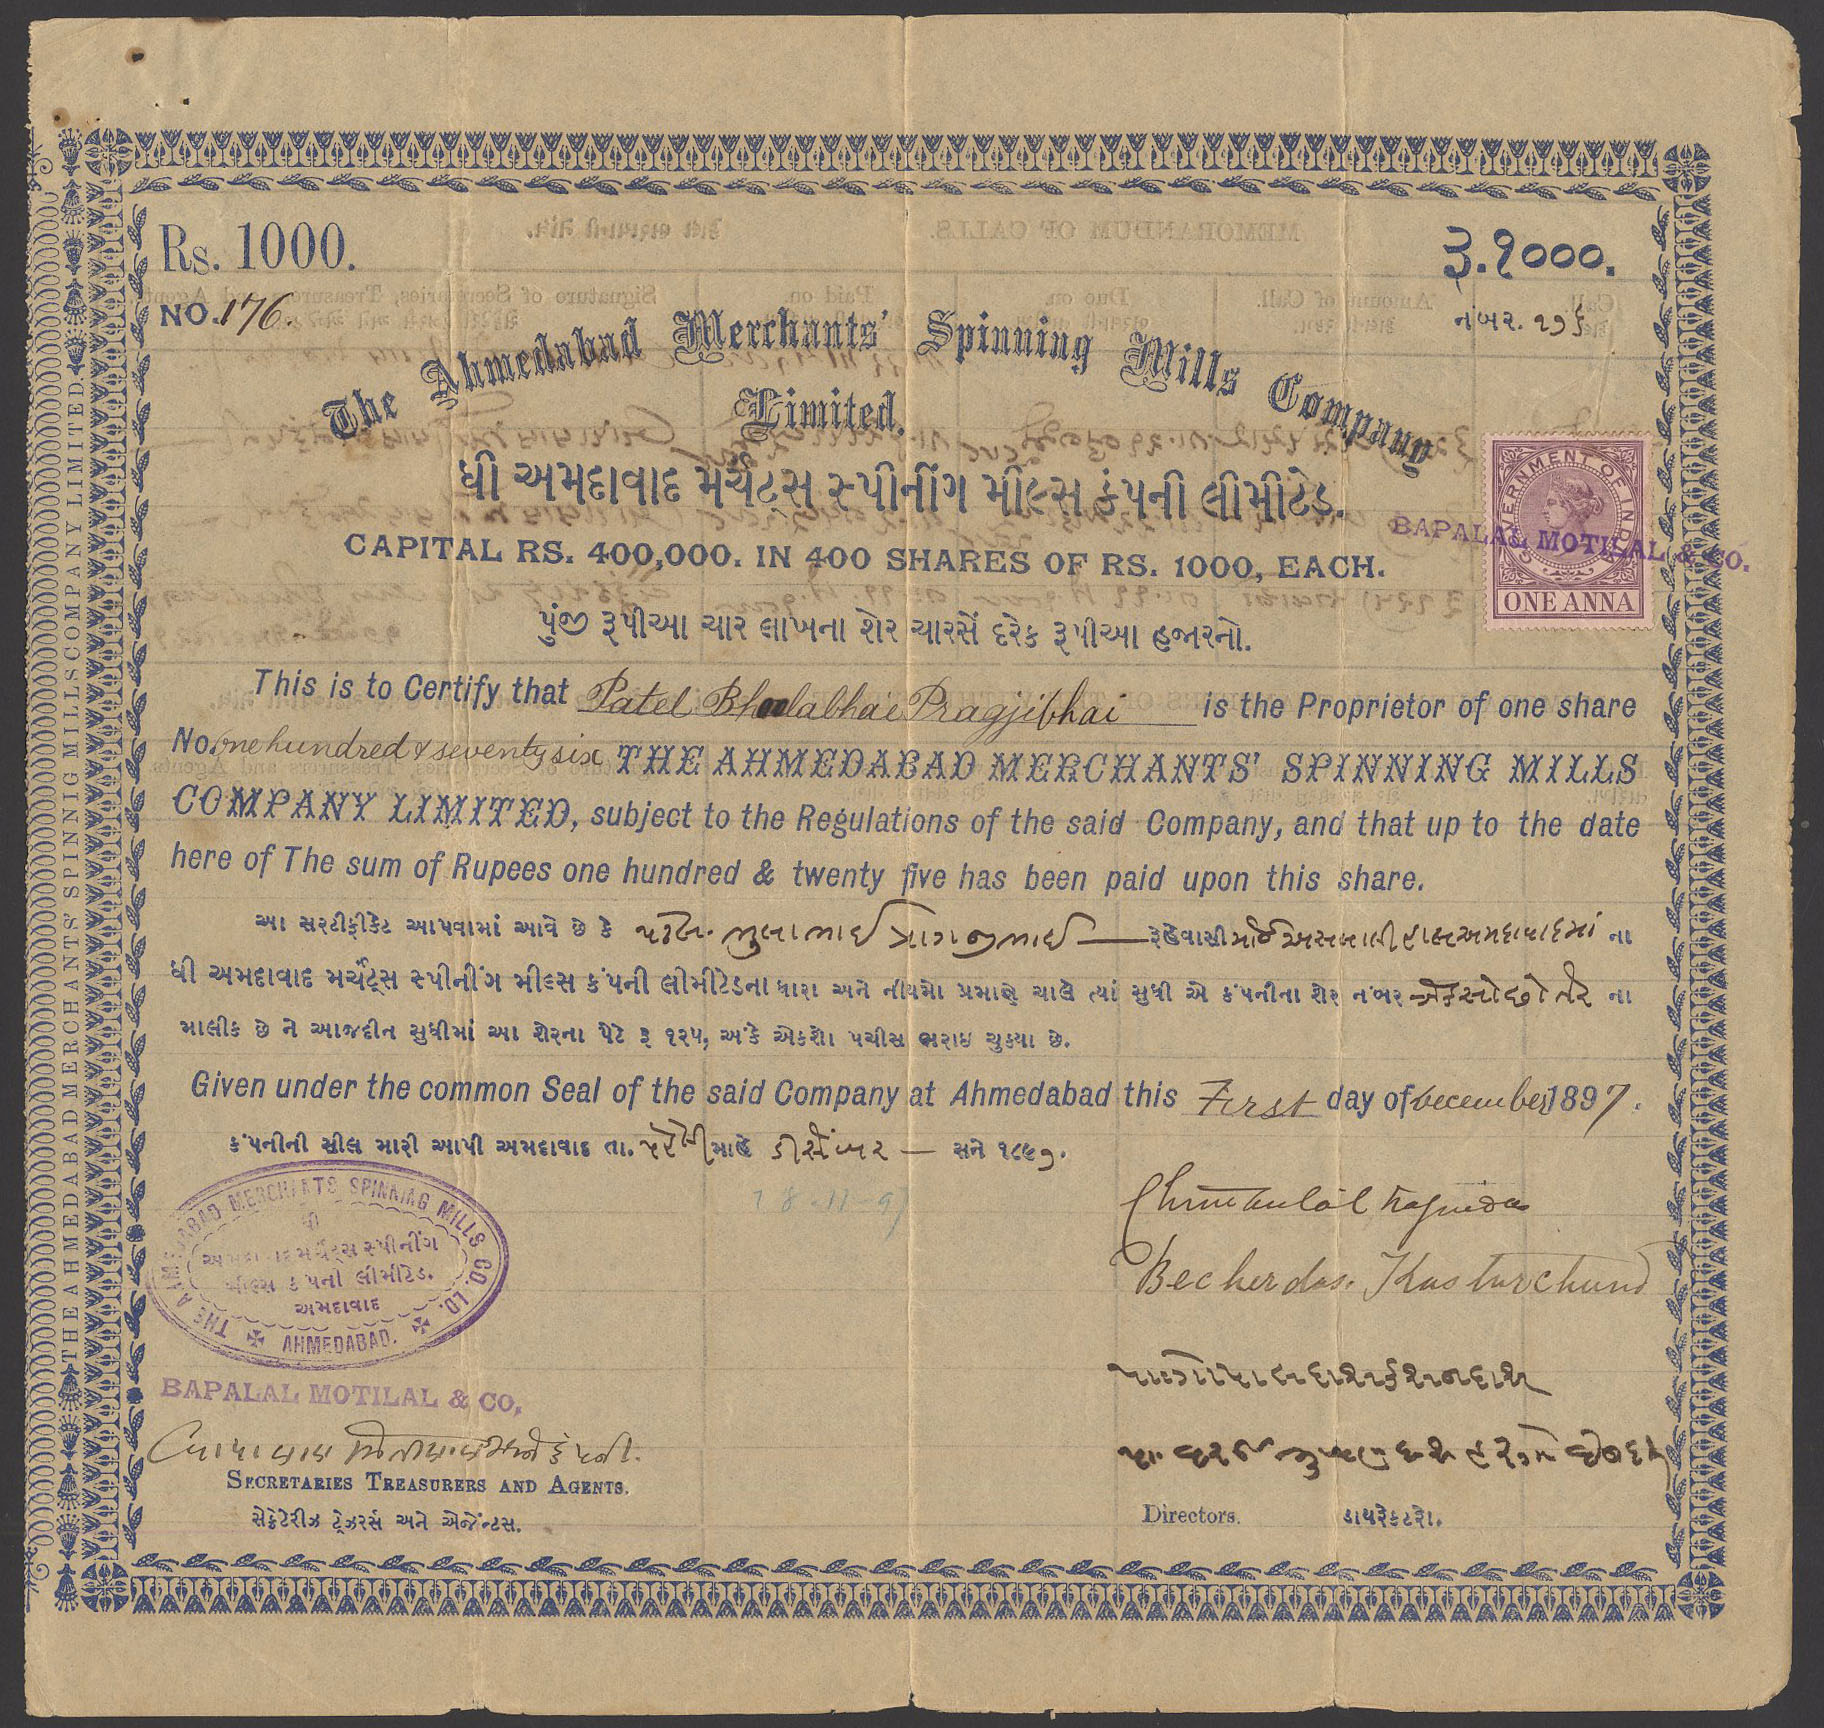 Rs. 1000.
રૂ.૧૦૦૦.
NO. 176.
નંબર. ૧૭૬
The Ahmedabad Merchants' Spinning Mills Company
Limited.
ધી અમદાવાદ મર્ચંટ્સ સ્પીનીંગ મીલ્સ કંપની લીમીટેડ.
CAPITAL RS. 400,000. IN 400 SHARES OF RS. 1000, EACH.
પુંજી રૂપીઆ ચાર લાખના શેર ચારસેં દરેક રૂપીઆ હજારનો.
GOVERNMENT OF INDIA
BAPALAL MOTILAL & CO.
ONE ANNA
This is to Certify that Patel Bhoolabhai Pragjibhai is the Proprietor of one share
No. one hundred & seventy six THE AHMEDABAD MERCHANTS' SPINNING MILLS
COMPANY LIMITED, subject to the Regulations of the said Company, and that up to the date
here of The sum of Rupees one hundred & twenty five has been paid upon this share.
આ સરટીફીકેટ આપવામાં આવે છે કે પટેલ. ભુલાભાઈ પ્રાગજીભાઈ રૂહેવાસી ના
ધી અમદાવાદ મર્ચંટ્સ સ્પીનીંગ મીલ્સ કંપની લીમીટેડના ધારા અને નીયમો પ્રમાણે ચાલે ત્યાં સુધી એ કંપનીના શેર નંબર એકસો છોતેર ના
માલીક છે ને આજદીન સુધીમાં આ શેરના પેટે રૂ ૧૨૫, અંકે એકશો પચીસ ભરાઇ ચુક્યા છે.
Given under the common Seal of the said Company at Ahmedabad this First day of December 1897.
કંપનીની સીલ મારી આપી અમદાવાદ તા. પેહેલી માહે ડીસેંબર — સને ૧૮૯૭.
18-11-97
THE AHMEDABAD MERCHANTS SPINNING MILLS CO. LD.
ધી
અમદાવાદ મર્ચંટ્સ સ્પીનીંગ
મીલ્સ કંપની લીમીટેડ.
અમદાવાદ
AHMEDABAD.
Chimanlal Nagindas
Becherdas Kasturchund
BAPALAL MOTILAL & CO,
બાપાલાલ મોતીલાલ અને કંપની.
SECRETARIES TREASURERS AND AGENTS.
સેક્રેટેરીઝ ટ્રેઝરર્સ અને એજેંન્ટસ.
Directors. ડાયરેક્ટરો.
THE AHMEDABAD MERCHANTS' SPINNIG MILLS COMPANY LIMITED.